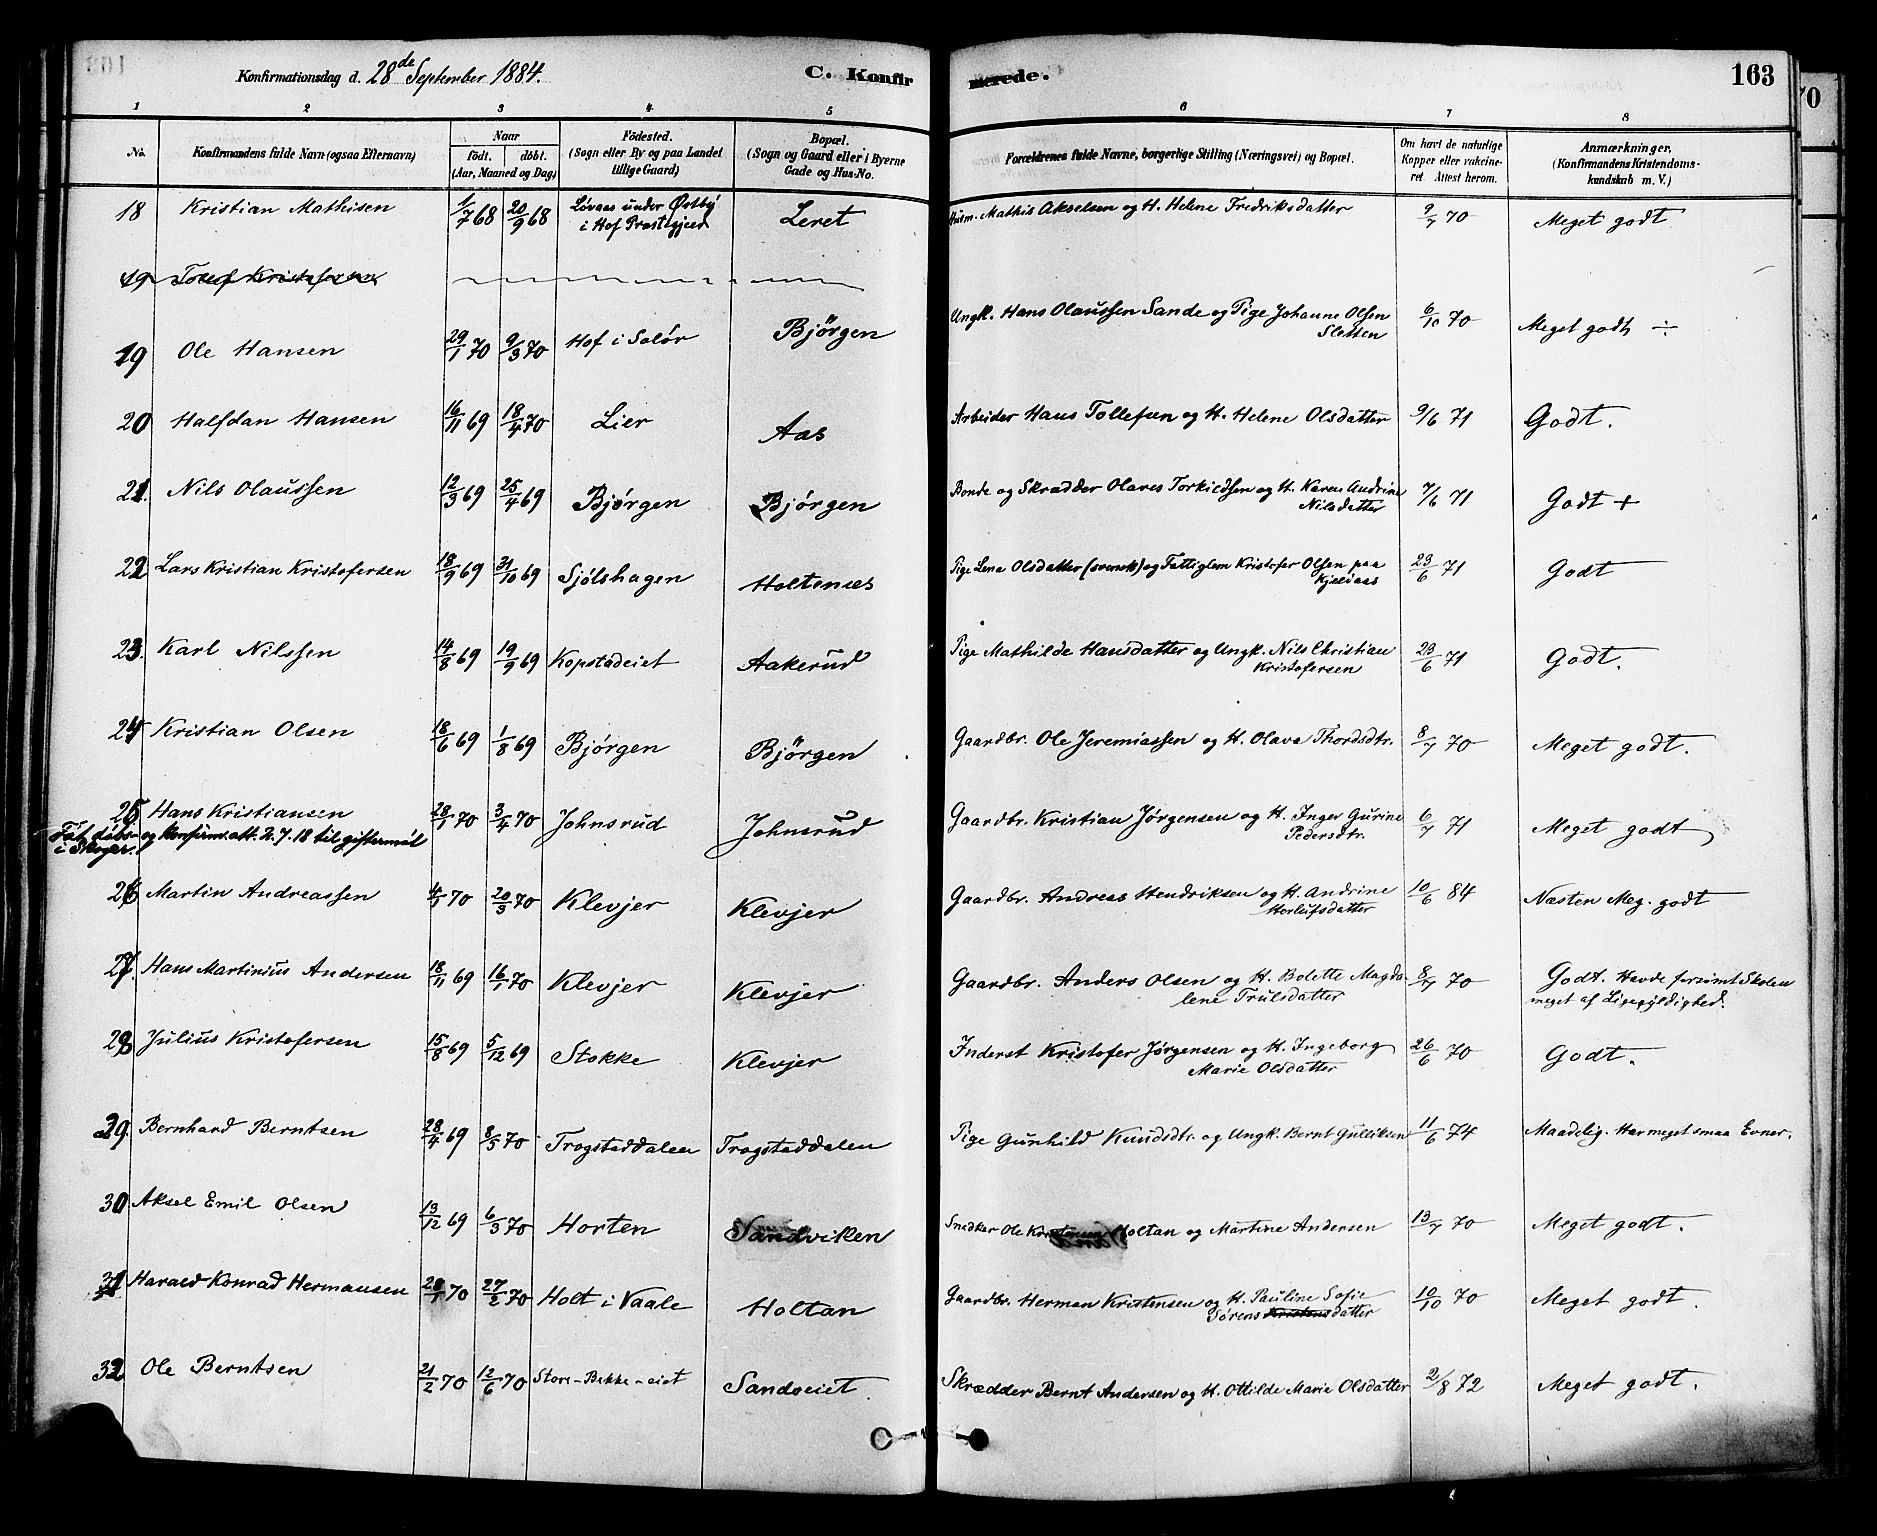 Konfirmationsdag d. 28de September 1884. C. Konfirmerede. 163
1 2 3 4 5 6 7 8
No. Konfirmandens fulde Navn (ogsaa Efternavn) Naar födt. döbt. (Aar, Maaned og Dag) Födested. (Sogn eller By og paa Landet tillige Gaard) Bopæl. (Sogn og Gaard eller i Byerne Gade og Hus-No. Forældrenes fulde Navne, borgerlige Stilling (Næringsvei) og Bopæl. Om havt de naturlige Kopper eller vakcineret. Attest herom. Anmærkninger. (Konfirmandens Kristendomskundskab m. V.)
18 Kristian Mathisen 1/7 68 20/9 68 Lövaas under Østby i Hof Præstegjeld Leret Husm. Mathis Akselsen og H. Helene Fredriksdatter 9/7 70 Meget godt
19 Tollef Kristofersen
19 Ole Hansen 29/1 70 9/3 70 Hof i Solör Bjørgen Ungk. Hans Olaussen Sande og Pige Johanne Olsen Sletten 6/10 70 Meget godt ÷
20 Halfdan Hansen 16/11 69 18/4 70 Lier Aas Arbeider Hans Tollefsen og H. Helene Olsdatter 9/6 71 Godt.
21. Nils Olaussen 12/3 69 25/4 69 Bjørgen Bjørgen Bonde og Skrædder Olaves Torkildsen og H. Karen Andrine Nilsdatter 7/6 71 Godt +
22 Lars Kristian Kristofersen 18/9 69 31/10 69 Sjölshagen Holtenæs Pige Lena Olsdatter (svensk) og Fattiglem Kristofer Olsen paa Kjeldaas 23/6 71 Godt
23. Karl Nilssen 14/8 69 19/9 69 Kopstadeiet Aakerud Pige Mathilde Hansdatter og Ungk. Nils Christian Kristofersen 23/6 71 Godt.
24 Kristian Olsen 18/6 69 1/8 69 Bjørgen Bjørgen Gaardbr. Ole Jeremiassen og H. Olava Thordsdtr. 8/7 70 Meget godt.
25 Hans Kristiansen 28/1 70 3/4 70 Johnsrud Johnsrud Gaardbr. Kristian Jørgensen og H. Inger Gurine Pedersdtr. 6/7 71 Meget godt
Fåt döbs- og konfirm.att. 2.7.18 til giftermål i Skoger.
26 Martin Andreassen 4/1 70 20/3 70 Klevjer Klevjer Gaardbr. Andreas Hendriksen og H. Andrine Herlufsdatter 10/6 84 Næsten Meg. godt
27. Hans Martinius Andersen 18/11 69 16/1 70 Klevjer Klevjer Gaardbr. Anders Olsen og H. Bolette Magdalene Trulsdatter 8/7 70 Godt. Havde forsømt Skolen meget af Ligegyldighed.
28 Julius Kristofersen 15/8 69 5/12 69 Stokke Klevjer Inderst Kristofer Jørgensen og H. Ingeborg Marie Olsdatter 26/6 70 Godt.
29. Bernhard Berntsen 28/4 69 8/5 70 Trogstaddalen Trogstaddalen Pige Gunhild Knudsdtr. og Ungk. Bernt Gulliksen 11/6 74 Maadelig. Har meget smaa Evner.
30 Aksel Emil Olsen 13/12 69 6/3 70 Horten Sandviken Snedker Ole Kristensen Holtan og Martine Andersen 13/7 70 Meget godt.
31 Harald Konrad Hermansen 20/1 70 27/2 70 Holt i Vaale Holtan Gaardbr. Herman Kristensen og H. Pauline Sofie Sørens Kristensdatter 10/10 70 Meget godt.
32 Ole Berntsen 21/2 70 12/6 70 Store-Bakke-eiet Sandseiet. Skrædder Bernt Andersen og H. Ottilde Marie Olsdatter 2/8 72 Meget godt.